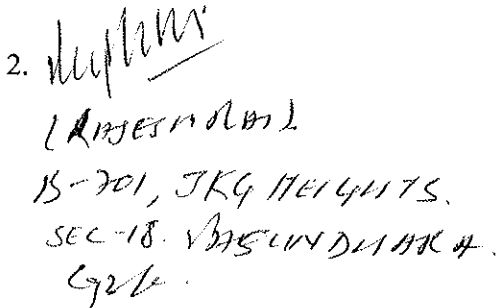 2.
(RAJESH
B-701, JKG HEIGHTS.
SEC-18. VASUNDHARA.
GZB.